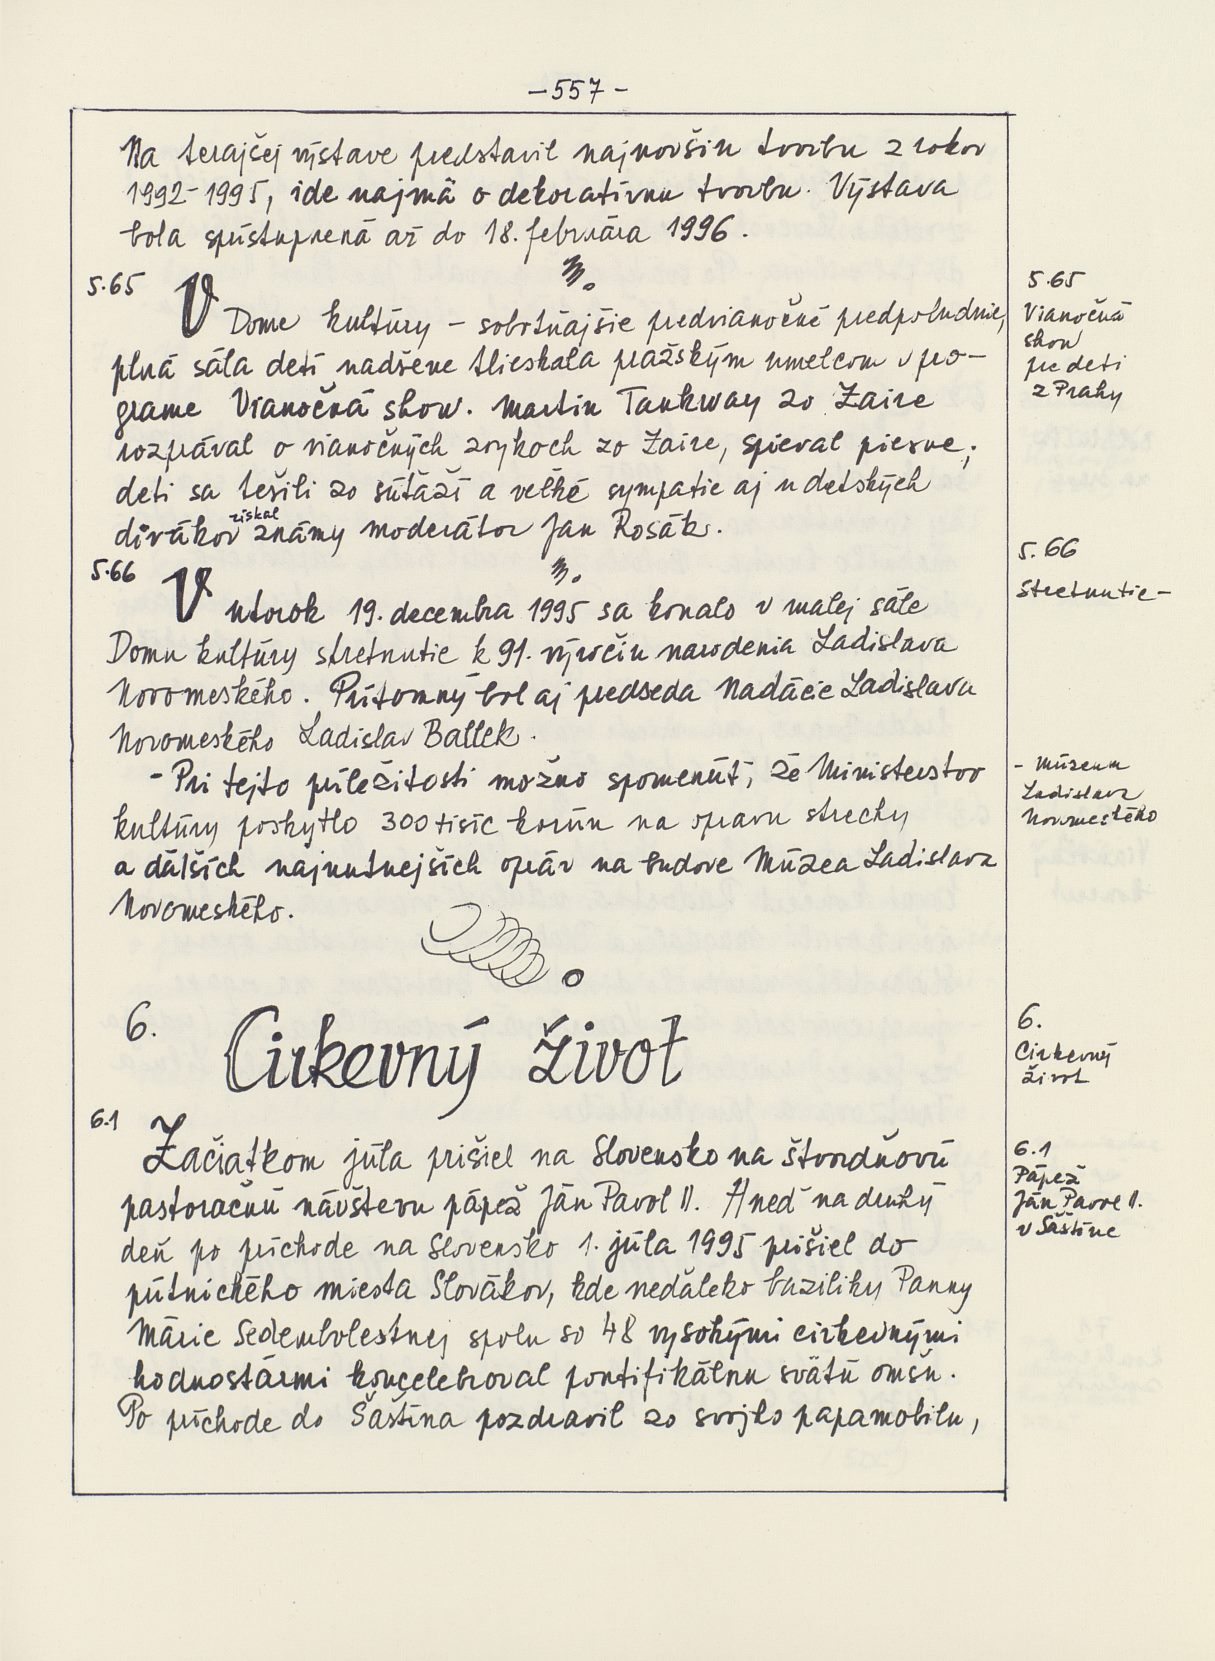 - 557 -
Na terajčej výstave predstavil najnovšiu tvorbu z rokov
1992-1995, ide najmä o dekoratívnu tvorbu. Výstava
bola sprístupnená až do 18. februára 1996.
5.65
V Dome kultúry – sobotňajšie predvianočné predpoludnie,
plná sála detí nadšene tlieskala pražským umelcom v pro-
grame Vianočná show. Martin Tankway zo Zaire
rozprával o vianočných zvykoch zo Zaire, spieval piesne;
deti sa tešili zo súťaží a veľké sympatie aj u detských
divákov získal známy moderátor Jan Rosák.
5.66
V utorok 19. decembra 1995 sa konalo v malej sále
Domu kultúry stretnutie k 91. výročiu narodenia Ladislava
Novomeského. Prítomný bol aj predseda Nadácie Ladislava
Novomeského Ladislav Ballek.
- Pri tejto príležitosti možno spomenúť, že Ministerstvo
kultúry poskytlo 300 tisíc korún na opravu strechy
a ďalších najnutnejších opráv na budove Múzea Ladislava
Novomeského.
6. Cirkevný život
6.1
Začiatkom júla prišiel na Slovensko na štvordňovú
pastoračnú návštevu pápež Ján Pavol II. Hneď na druhý
deň po príchode na Slovensko 1. júla 1995 prišiel do
pútnického miesta Slovákov, kde neďaleko baziliky Panny
Márie Sedembolestnej spolu so 48 vysokými cirkevnými
hodnostármi koncelebroval pontifikálnu svätú omšu.
Po príchode do Šaštína pozdravil zo svojho papamobilu,
5.65
Vianočná
show
pre deti
z Prahy
5.66
Stretnutie -
- Múzeum
Ladislava
Novomeského
6.
Cirkevný
život
6.1
Pápež
Ján Pavol II.
v Šaštíne